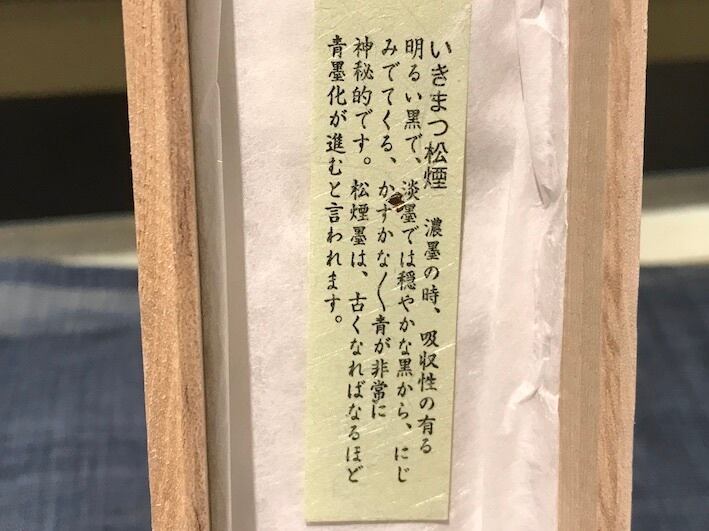 いきまつ松煙　濃墨の時、吸収性の有る
明るい黒で、淡墨では穏やかな黒から、にじ
みでてくる、かすかな〳〵青が非常に
神秘的です。松煙墨は、古くなればなるほど
青墨化が進むと言われます。